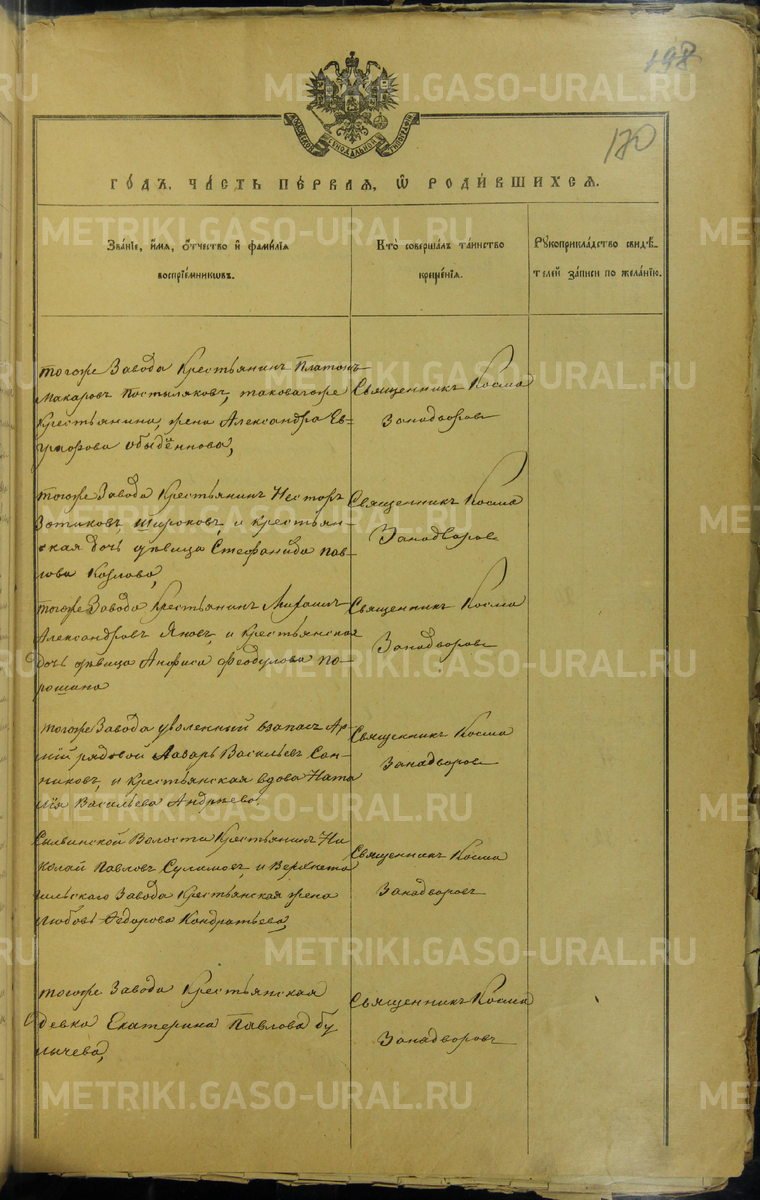 198
170
МОСКОВСКОЙ СѴНОДАЛЬНОЙ ТИПОГРАФІИ
ГО́ДЪ, ЧА́СТЬ ПЕ́РВАЯ, Ѡ҆ РОДИ́ВШИХСЯ.
Зва́ніе, и҆́мя, ѻ҆́тчество и҆ фами́лія
воспріе́мниковъ.
Кто̀ соверша́лъ та́инство
креще́нія.
Рꙋкоприкла́дство свидѣ́-
телей за́писи по жела́нію.
тогоже Завода Крестьянинъ Платонъ
Макаровъ Постыляковъ, таковагоже
Крестьянина, жена Александра Ев-
графова Обыдённова,
Священникъ Косма
Занадворовъ
тогоже Завода Крестьянинъ Несторъ
Зотиковъ Широковъ, и крестьян-
ская дочь дѣвица Стефанида Пав-
лова Козлова,
Священникъ Косма
Занадворовъ
тогоже Завода Крестьянинъ Михаилъ
Александровъ Яновъ, и Крестьянская
дочь дѣвица Анфиса Феодулова По-
рошина
Священникъ Косма
Занадворовъ
тогоже Завода уволенный взапасъ Ар-
мій рядовой Лазарь Васильевъ Сан-
никовъ, и Крестьянская вдова Ната
лія Васильева Андреева.
Священникъ Косма
Занадворовъ
Сылвинской Волости Крестьянинъ Ни
колай Павловъ Сулимовъ, и Верхнета
гильскаго Завода Крестьянская жена
Любовь Федорова Кондратьева,
Священникъ Косма
Занадворовъ
тогоже Завода Крестьянская
девка Екатерина Павлова Бу
лычева,
Священникъ Косма
Занадворовъ
METRIKI.GASO-URAL.RU